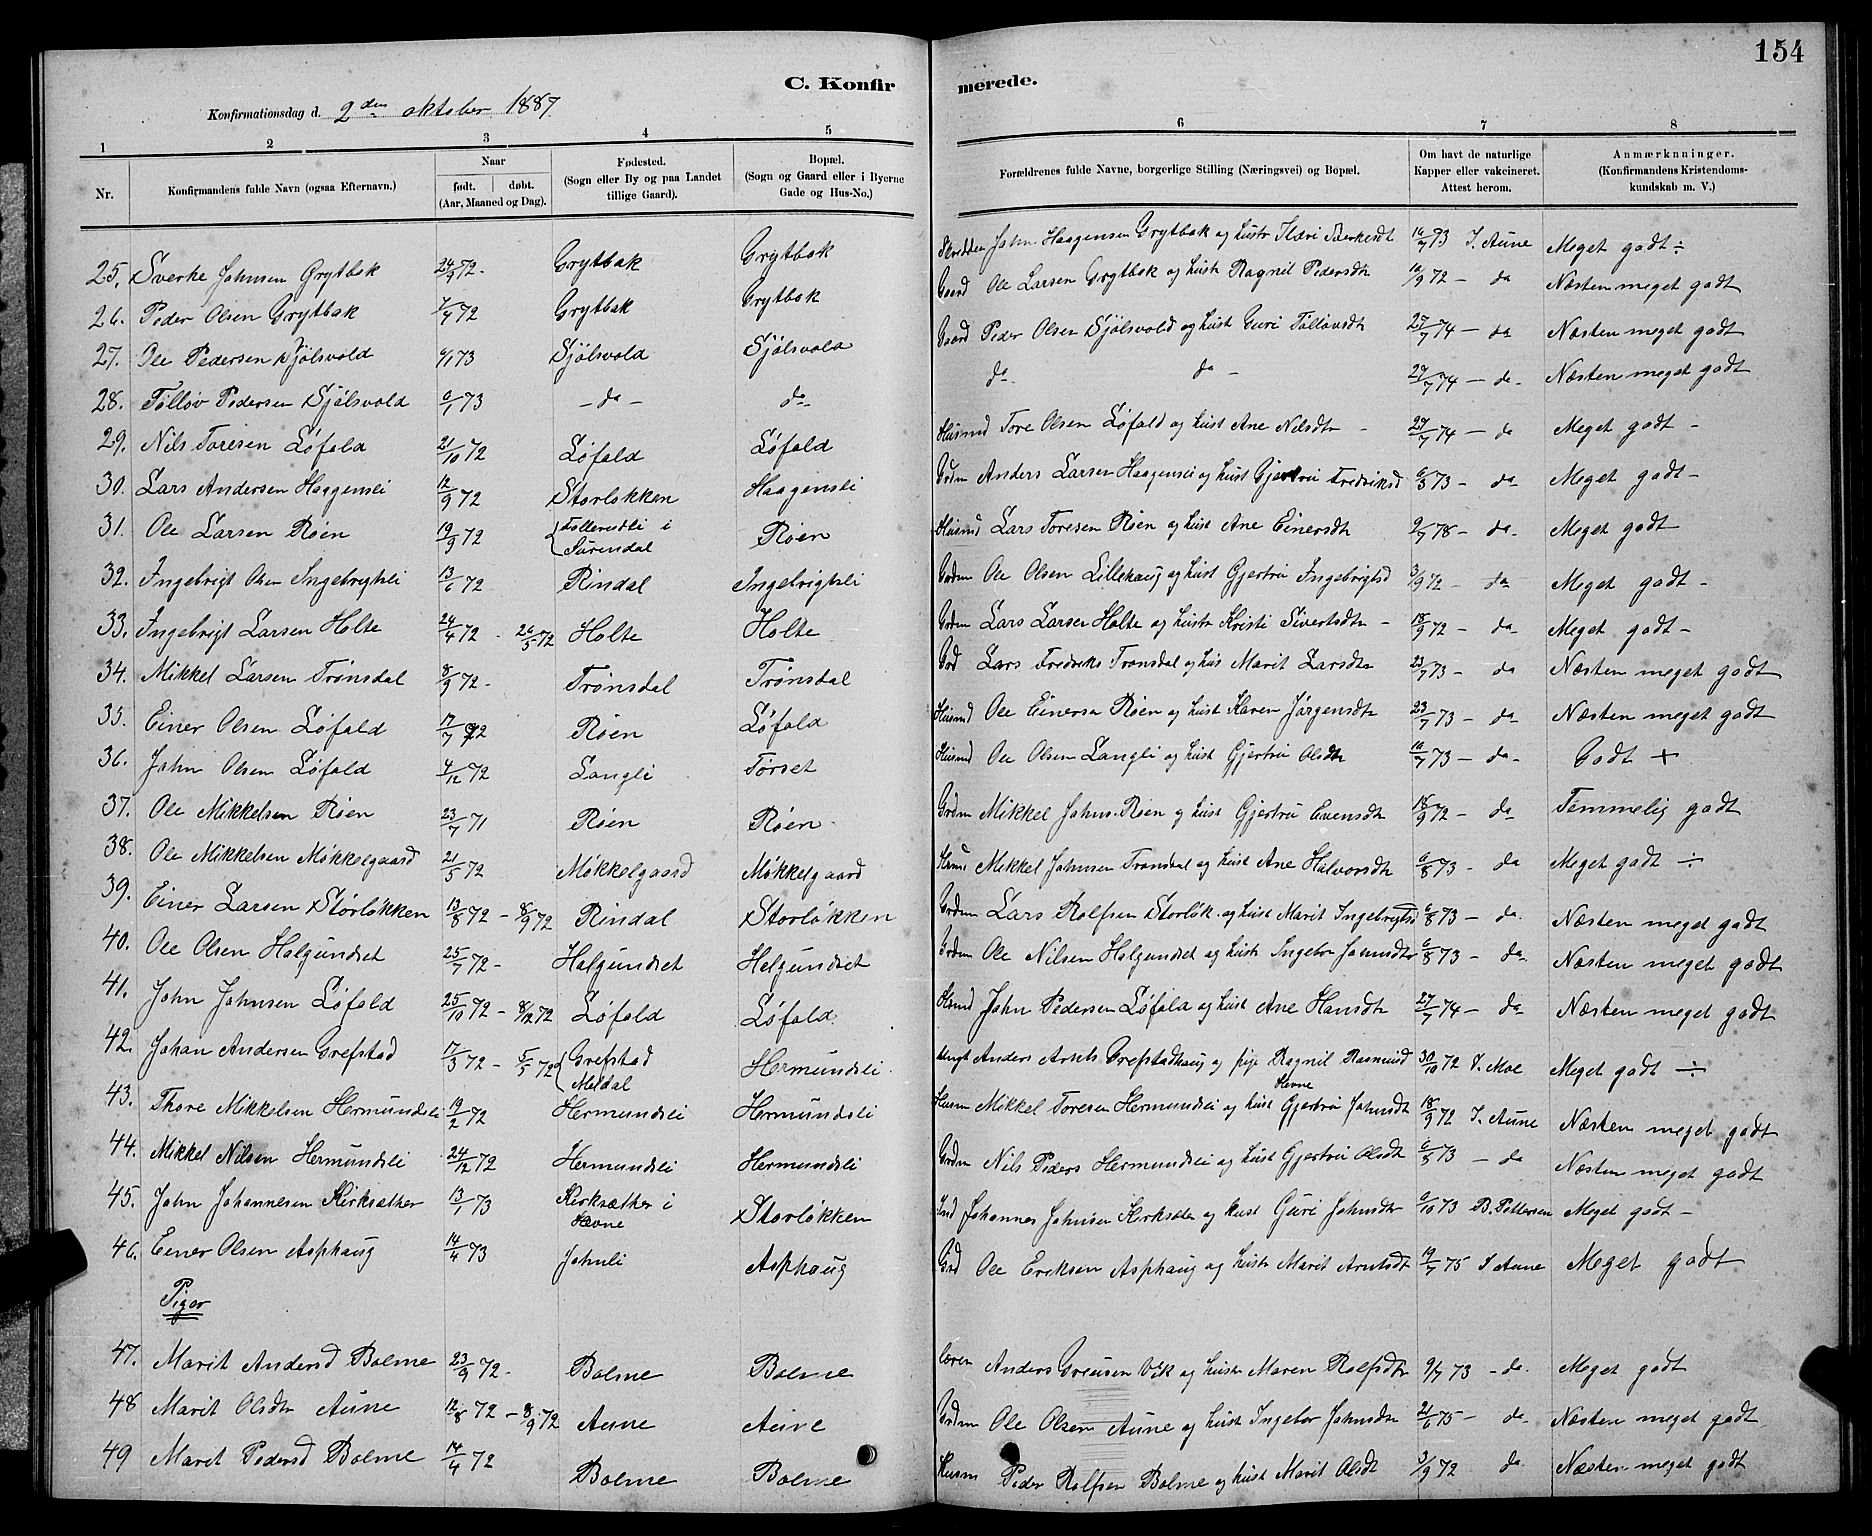 154
C. Konfirmerede.
Konfirmationsdag d. 2den oktober 1887
1 2 3 4 5 6 7 8
Nr. Konfirmandens fulde Navn (ogsaa Efternavn.) Naar født. døbt. (Aar, Maaned og Dag). Fødested. (Sogn eller By og paa Landet tillige Gaard). Bopæl. (Sogn og Gaard eller i Byerne Gade og Hus-No.) Forældrenes fulde Navne, borgerlige Stilling (Næringsvei) og Bopæl. Om havt de naturlige Kapper eller vakcineret. Attest herom. Anmærknninger. (Konfirmandens Kristendomskundskab m. V.)
25. Sverke Johnsen Grytbak 24/9 72 - Grytbak Grytbak John Haagensen Grytbak og hustr 73 I. Aune Meget godt ÷
26. Peder Olsen Grytbak 72 Grytbak Grytbak Gaard Ole Larsen Grytbak og hustr Ragnil Pedersdtr 72 - do Næsten meget godt
27. Ole Pedersen Sjølsvold 6/1 73 Sjølsvold Sjølsvold Gaard Peder Olsen Sjølsvold og hust GuriØlløvsdtr 27/7 74 - do Næsten meget godt
28. Tølløv Pedersen Sjølsvold 6/1 73 - do - do do do - 27/7 74 - do - Næsten meget godt
29. Nils Toresen Løfald 21/10 72 Løfald Løfald Husmd Tore Olsen Løfald og hust Ane Nilsdtr - 27/7 74 - do Meget godt -
30. Lars Andersen Haagensli 12/9 72 Storløkken Haagensli Grdm Anders Larsen Haagensli og hust Gjertru Fredriksd 73 - do Meget godt -
31. Ole Larsen Røen 19/9 72 i Surendal Røen Husmd Lars Toresen Røen og hust Ane Einersdtr 78 - do - Meget godt
32. Ingebrigt Olsen Ingebrigtsli 13/6 72 Rindal Ingebrigtsli Grdm Ole Olsen Lillehaug og hust Gjertru Ingebrigtsd 3/9 72 - do Meget godt -
33. Ingebrigt Larsen Holte 24/4 72 - 26/5 72 Holte Holte Grdm Lars Larsen Holte og hustr Kristi Sivertsdtr - 18/9 72 - do Meget godt -
34. Mikkel Larsen Trønsdal 8/9 72 - Trønsdal Trønsdal Grd Lars Fredriks Trønsdal og hus Marit Larsdtr 23/7 73 - do Næsten meget godt
35. Einer Olsen Løfald 17/7 72 Røen Løfald Husmd Ole Einersen Røen og hust Karen Jørgensdtr 23/7 73 - do Næsten meget godt
36. John Olsen Løfald 4/12 72 Langli Tørset Husmd Ole Olsen Langli og hust Gjertru Olsdtr 73 - do - Godt +
37. Ole Mikkelsen Røen 23/7 71 Røen Røen Grdm Mikkel Johns. Røen og hust Gjertru Evensdtr 18/9 72 - do Temmelig godt
38. Ole Mikkelsen Møkkelgaard 21/5 72 Møkkelgaard Møkkelgaard Mikkel Johnsen Trønsdal og hust Ane Halvorsdtr 6/8 73 - do Meget godt ÷
39. Einer Larsen Storløkken 13/8 72 - 8/9 72 Rindal Storløkken Grdm Lars Rolfsen Storløk. og hust Marit Ingebrigtsd 6/8 73 - do. Næsten meget godt
40. Ole Olsen Halgundset 25/7 72 - Halgundset Helgundset Grdm Ole Nilsen Halgundset og hustr Ingebor Johnsdtr 6/8 73 - do Næsten meget godt
41. John Johnsen Løfald 25/10 72 - 8/12 72 Løfald Løfald John Pedersen Løfald og hust Ane Hansdtr 27/7 74 - do Næsten meget godt
42. Johan Andersen Grefstad 17/3 72 - 5/5 72 Grefstad Meldal Hermundsli. Ungk Anders Arnts Grefstadhaug og pige Ragnil Rasmusd 30/10 72 Moe Meget godt ÷
43. Thore Mikkelsen Hermundsli 19/2 72 Hermundsli Hermundsli Husm Mikkel Toresen Hermundsli og hust Gjertru Johnsdtr 18/9 72 I. Aune Næsten meget godt
44. Mikkel Nilsen Hermundsli 24/12 72 Hermundsli Hermundsli Grdm Nils Peders Hermundsli og hust Gjertru Olsdtr 73 - do Næsten meget godt
45. John Johannesen Kirksæther 13/1 73 Kirksæther i Hevne Storløkken Johannes Johnsen Kirksæter og hust Guri Johnsdtr Hevne 6/10 73 B. Pettersen Meget godt -
46. Einer Olsen Asphaug 14/4 73 Johnli Asphaug Grd Ole Eriksen Asphaug og hustr Marit Arntsdtr 19/7 75 I Aune Meget godt
Piger
47. Marit Andersd Bolme 23/9 72 - Bolme Bolme Anders Vik og hustr Maren Rolfsdtr 9/7 73 - do. Meget godt
48 Marit Olsdtr Aune 12/8 72 - 8/9 72 Aune Aune Grdm Ole Olsen Aune og hust Ingebor Johnsdtr 21/6 75 - do Næsten meget godt
49 Marit Pedersd Bolme 14/4 72 Bolme Bolme Husm Peder Rolfsen Bolme og hust Marit Olsdt 3/9 72 do Næsten meget godt